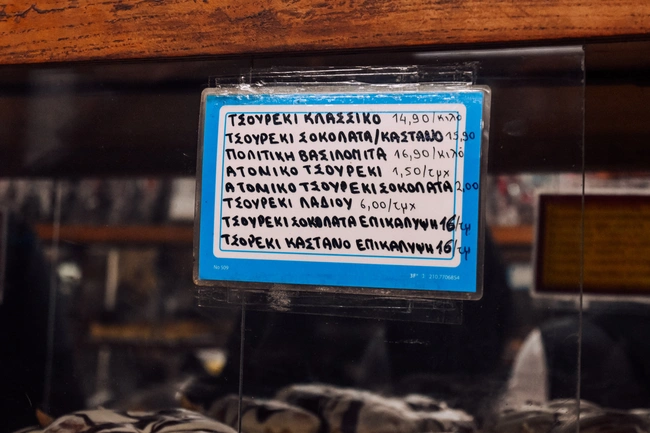 ΤΣΟΥΡΕΚΙ ΚΛΑΣΣΙΚΟ 14,90/κιλό
ΤΣΟΥΡΕΚΙ ΣΟΚΟΛΑΤΑ/ΚΑΣΤΑΝΟ 15,90
ΠΟΛΙΤΙΚΗ ΒΑΣΙΛΟΠΙΤΑ 16,90/κιλό
ΑΤΟΜΙΚΟ ΤΣΟΥΡΕΚΙ 1,50/τμχ
ΑΤΟΜΙΚΟ ΤΣΟΥΡΕΚΙ ΣΟΚΟΛΑΤΑ 2,00
ΤΣΟΥΡΕΚΙ ΛΑΔΙΟΥ 6,00/τμχ
ΤΣΟΥΡΕΚΙ ΣΟΚΟΛΑΤΑ ΕΠΙΚΑΛΥΨΗ 16/τμ
ΤΣΟΡΕΚΙ ΚΑΣΤΑΝΟ ΕΠΙΚΑΛΥΨΗ 16/τμ